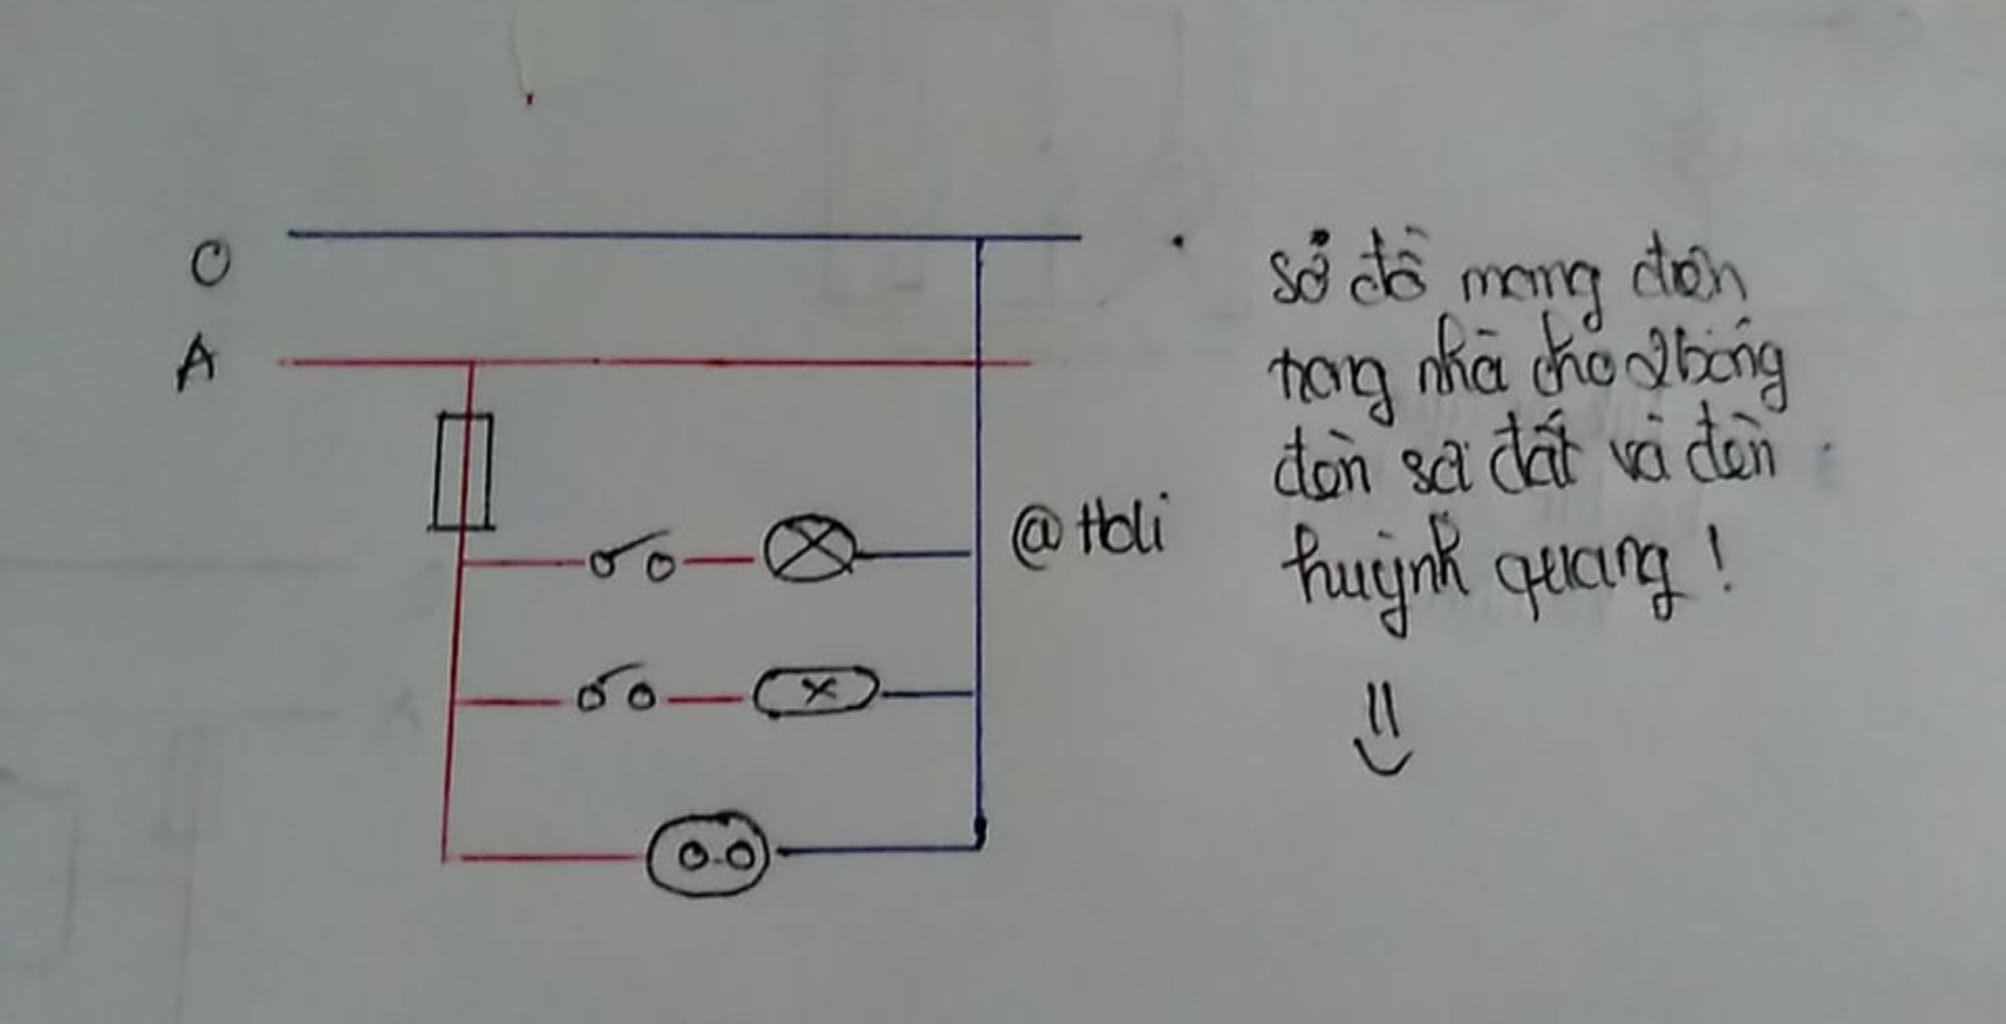 O
A
@Holi
sơ đồ mạng điện
trong nhà cho 2 bóng
đèn sợi đốt và đèn
huỳnh quang !